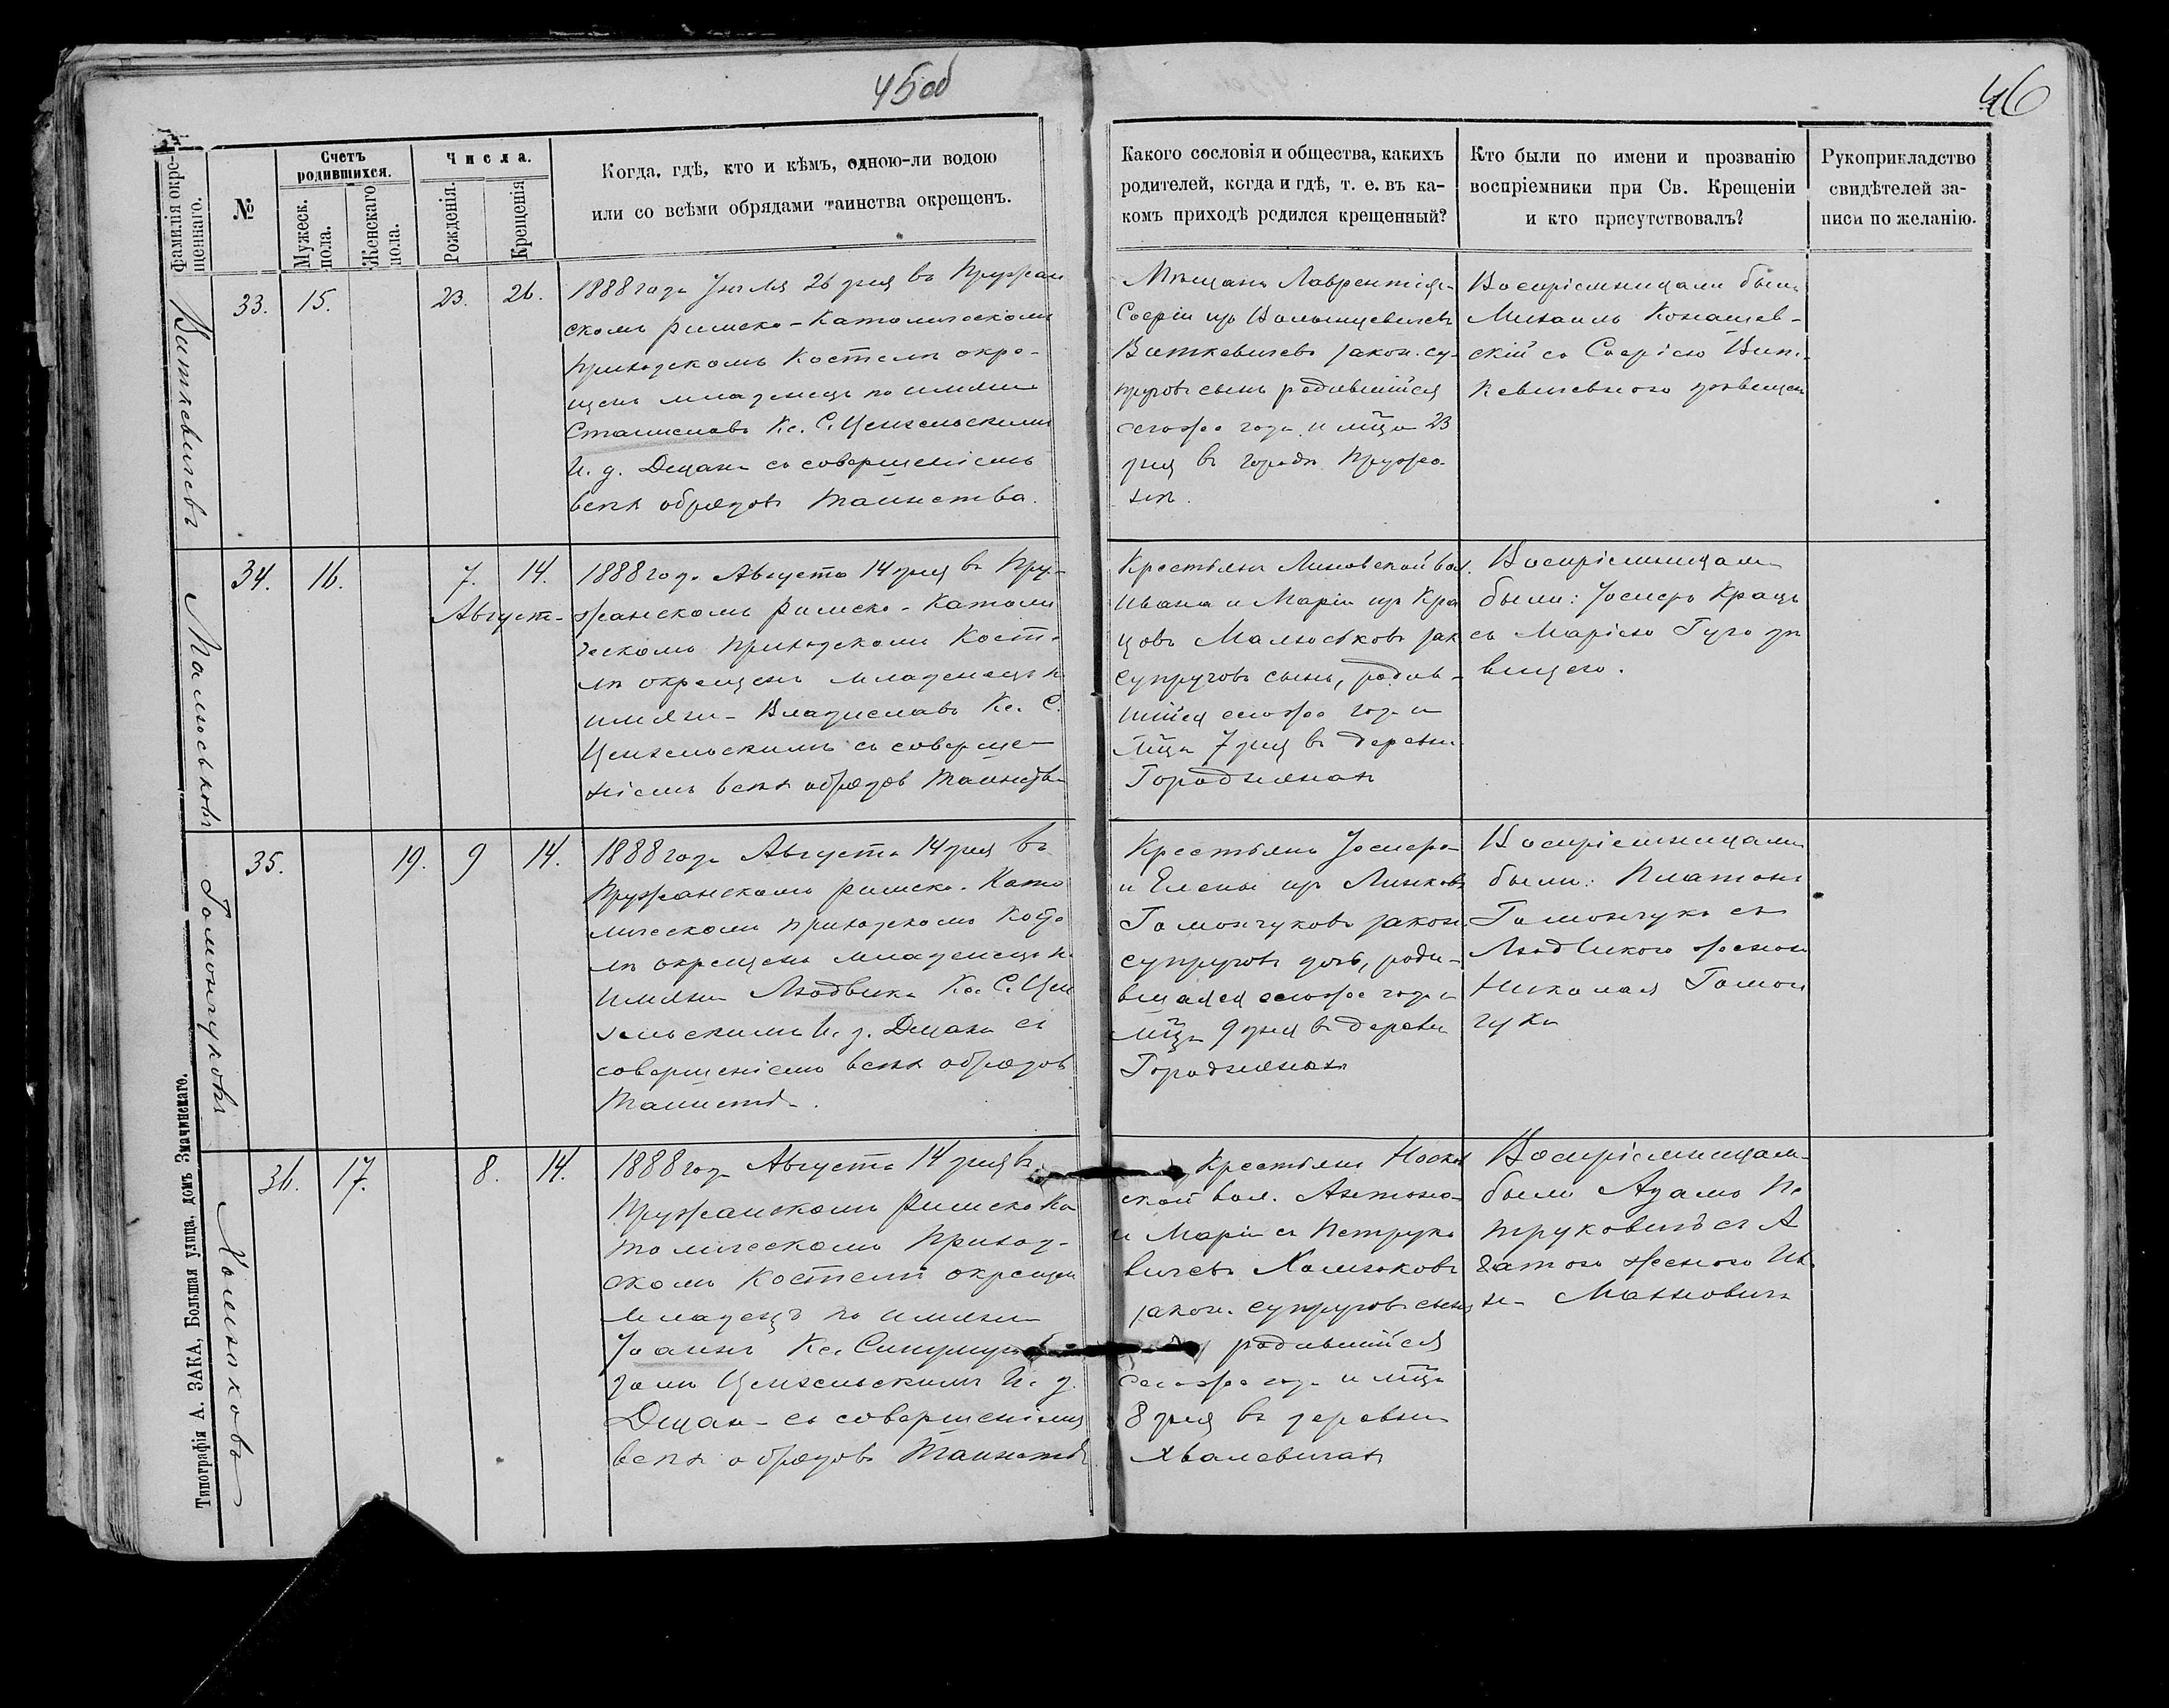 45об
46
Фамилія окре-
щеннаго.
№
Счетъ
родившихся.
Мужеск.
пола.
Женскаго
пола.
Числа.
Рожденія.
Крещенія
Когда, гдѣ, кто и кѣмъ, одною-ли водою
или со всѣми обрядами таинства окрещенъ.
Какого сословія и общества, какихъ
родителей, когда и гдѣ, т. е. въ ка-
комъ приходѣ родился крещенный?
Кто были по имени и прозванію
воспріемники при Св. Крещеніи
и кто присутствовалъ?
Рукоприкладство
свидѣтелей за-
писи по желанію.
Виткевичевъ
33. 15. 23. 26.
1888 года Іюля 26 дня въ Пружан
скомъ римско-католическомъ
приходскомъ костелѣ окре-
щенъ младенецъ по имени
Станиславъ Кс. С. Цензельскимъ
И. д. Декана съ совершеніемъ
всѣхъ обрядовъ таинства.
Мѣщанъ Лаврентія
Софіи изъ
Виткевичевъ закон. су-
пруговъ сынъ родившійся
сегоже года и мѣца 23
дня въ городѣ Пружа-
нѣ.
Воспріемниками были
Михаилъ
скій съ Софіею Вит-
кевичевною дѣвицею
Малюськовъ
34. 16. 7. 14.
Август.
1888 года Августа 14 дня въ Пру-
жанскомъ римско-католи
ческомъ приходскомъ косте
лѣ окрещенъ младенецъ п
имени Владиславъ Кс. С.
Цензельскимъ съ соверше-
ніемъ всѣхъ обрядовъ таинства
Крестьянъ Линовской вол.
Ивана и Маріи изъ Кра
цовъ Малюськовъ зак
супруговъ сынъ, родив-
шійся сегоже года и
мѣца 7 дня въ деревни
Городнянахъ
Воспріемниками
были: Іосифъ Крацъ
съ Маріею Гуго дѣ
вицею.
Гомончуковъ
35. 19. 9 14.
1888 года Августа 14 дня въ
Пружанскомъ римско-като
лическомъ приходскомъ косте
лѣ окрещена младенецъ п
имени Людвика Кс. С. Цен
зельскимъ И. д. Декана съ
совершеніемъ всѣхъ обрядовъ
таинства.
Крестьянъ Іосифа
и Елены изъ Линковъ
Гомончуковъ закон.
супруговъ дочь, роди-
вшаяся сегоже года и
мѣца 9 дня въ деревни
Городнянахъ
Воспріемниками
были: Платонъ
Гомончукъ съ
Людвикою женою
Николая Гомон
чука
Хомюковъ
36. 17. 8. 14.
1888 года Августа 14 дня въ
Пружанскомъ римско ка
толическомъ приход-
скомъ костелѣ окрещен
младенецъ по имени
Іоаннъ Кс.
Цензельскимъ И. д.
Декана съ совершеніемъ
всѣхъ обрядовъ таинства
Крестьянъ Носков
ской вол. Антона
и Маріи съ Петруко
вичевъ Хомюковъ
закон. супруговъ сынъ
родившійся
сегоже года и мѣца
8 дня въ деревни
Хвалевичахъ
Воспріемниками
были Адамъ Пе
труковичъ съ А
гатою женою Ив
на Махновича
Типографія А. ЗАКА, Большая улица, домъ Значинскаго.